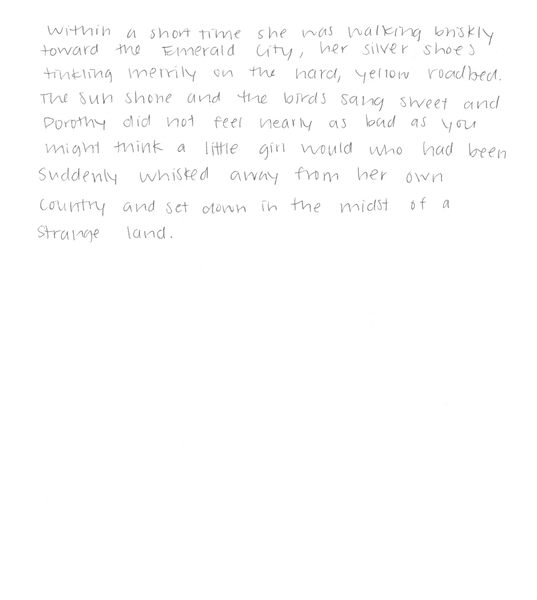 Within a short time she was walking briskly
toward the Emerald City, her silver shoes
tinkling merrily on the hard, yellow roadbed.
The sun shone and the birds sang sweet and
Dorothy did not feel nearly as bad as you
might think a little girl would who had been
suddenly whisked away from her own
country and set down in the midst of a
strange land.